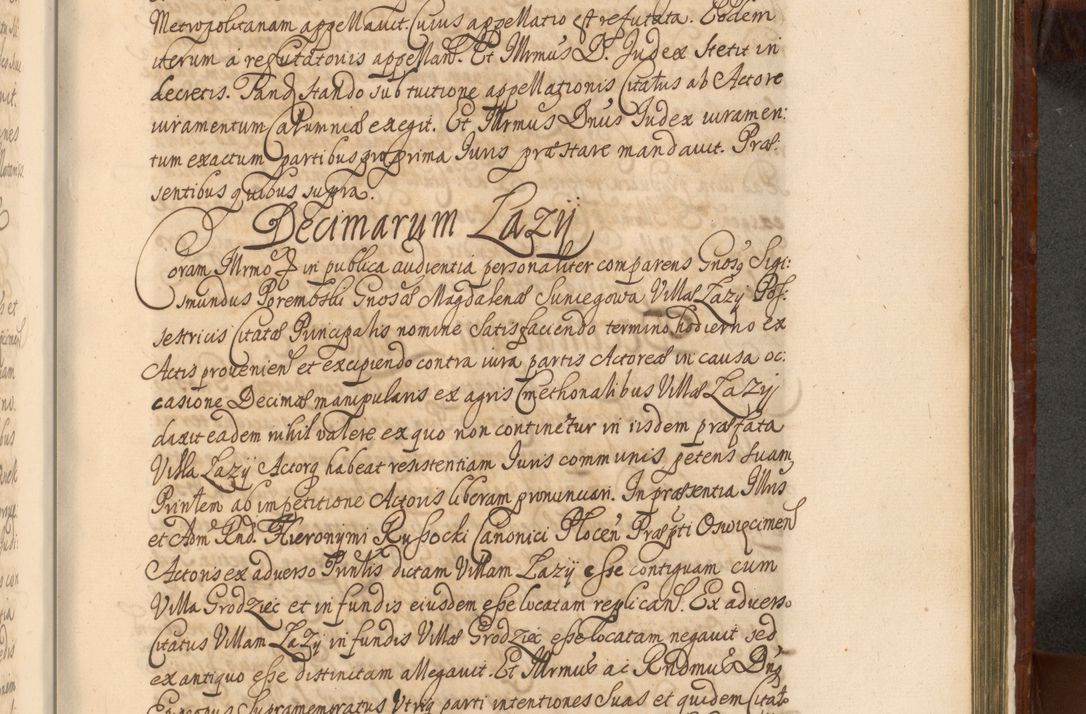 Metropolitanam appellavit. Cuius appellatio est refutata. Eodem
iterum a refutatoriis appellan̄. Et Illrmus D. Judex stetit in
decretis. Tand stando sub tuitione appellationis Citatus ab Actore
iuramentum Calumniæ exegit. Et Illrmus Dnus Judex iuramen:
tum exactum partibus pro prima Juris præstare mandavit. Præ
sentibus quibus supra.
Decimarum Lazÿ
Coram Illrmo in publica audientia personaliter comparens Gnosq Sigi:
smundus Porembski Gnosæ Magdalenæ Suniegowa Villæ Lazy Pos:
sestricis Citatæ Principalis nomine satisfaciendo termino hodierno ex
Actis provenien et excipiendo contra iura partis Actoreæ in causa oc:
casione Decimæ manipularis ex agris Cmethonalibus Villæ Lazÿ
dixit eadem nihil valere ex quo non continetur in iisdem præfata
Villa Lazÿ Actorq habeat resistentiam Juris communis petens suam
Prinlem ab impetitione Actoris liberam pronunciari. In præsentia Illris
et Adm Rnd. Hieronymi Russocki Canonici Plocen Præpti Oswięcimen
Actoris ex adverso Prinlis dictam Villam Lazÿ esse contiguam cum
Villa Grodziec et in fundis eiusdem esse locatam replican. Ex adverso
Citatus Villam Lazy in fundis Villæ Grodziec esse locatam negavit sed
ex antiquo esse distinctam allegavit. Et Illrmus ac Rndmus Dnq
Episcopus supramemoratus Utriq parti intentiones suas et quidem Citat